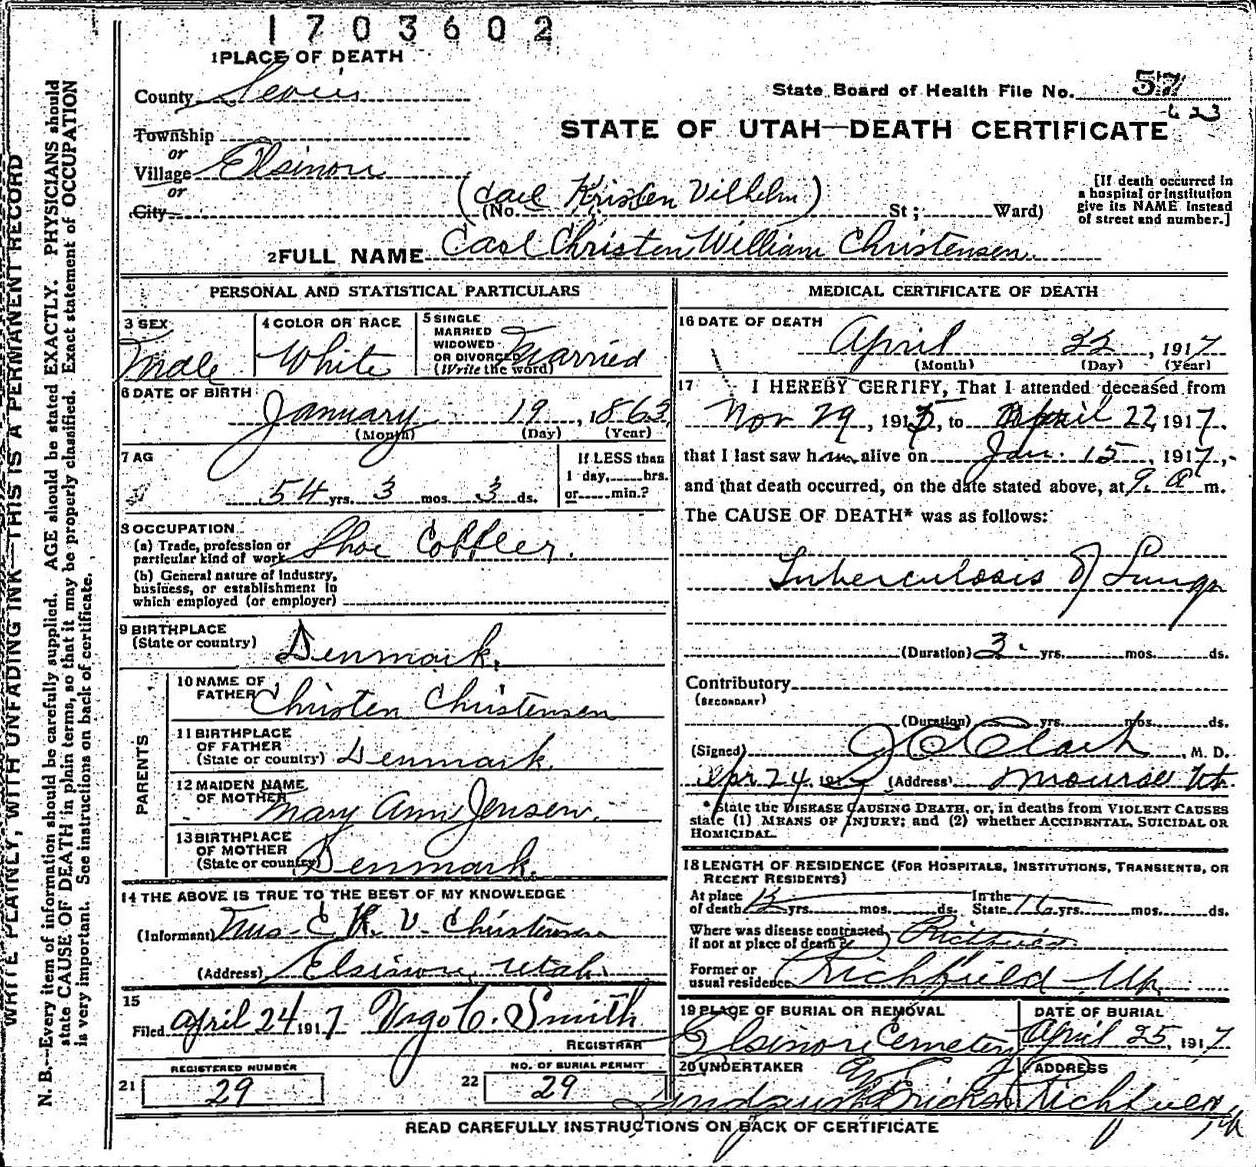 1703602
1 PLACE OF DEATH
County Sevier
State Board of Health File No. 57
23
Township
or
STATE OF UTAH—DEATH CERTIFICATE
Village Elsinore
or
(Carl Kristen Vilhelm)
City
(No. St; Ward)
[If death occurred in
a hospital or institution
give its NAME instead
of street and number.]
2 FULL NAME Carl Christen William Christensen.
PERSONAL AND STATISTICAL PARTICULARS
3 SEX
Male
4 COLOR OR RACE
White
5 SINGLE
MARRIED
WIDOWED
OR DIVORCED
(Write the word)
Married
6 DATE OF BIRTH
January 19, 1863
(Month) (Day) (Year)
7 AG
54 yrs. 3 mos. 3 ds.
If LESS than
1 day, hrs.
or min.?
8 OCCUPATION
(a) Trade, profession or
particular kind of work Shoe Cobbler.
(b) General nature of industry,
business, or establishment in
which employed (or employer)
9 BIRTHPLACE
(State or country) Denmark.
PARENTS
10 NAME OF
FATHER Christen Christensen
11 BIRTHPLACE
OF FATHER
(State or country) Denmark.
12 MAIDEN NAME
OF MOTHER Mary Ann Jensen.
13 BIRTHPLACE
OF MOTHER
(State or country) Denmark.
14 THE ABOVE IS TRUE TO THE BEST OF MY KNOWLEDGE
(Informant) Mrs. C. K. V. Christensen
(Address) Elsinore, Utah.
15
Filed April 24 1917 C. Smith
REGISTRAR
REGISTERED NUMBER
21 29
NO. OF BURIAL PERMIT
22 29
MEDICAL CERTIFICATE OF DEATH
16 DATE OF DEATH
April 22, 1917
(Month) (Day) (Year)
17 I HEREBY CERTIFY, That I attended deceased from
Nov 29, 1915, to April 22, 1917.
that I last saw him alive on Jan. 15, 1917,
and that death occurred, on the date stated above, at 9. a m.
The CAUSE OF DEATH* was as follows:
Tuberculosis of Lungs
(Duration) 3. yrs. mos. ds.
Contributory
(SECONDARY)
(Duration) yrs. mos. ds.
(Signed) Clark, M. D.
Apr 24, 1917 (Address) Monroe Ut.
* State the DISEASE CAUSING DEATH, or, in deaths from VIOLENT CAUSES
state (1) MEANS OF INJURY; and (2) whether ACCIDENTAL, SUICIDAL OR
HOMICIDAL.
18 LENGTH OF RESIDENCE (FOR HOSPITALS, INSTITUTIONS, TRANSIENTS, OR
RECENT RESIDENTS)
At place
of death yrs. mos. ds.
In the
State 16 yrs. mos. ds.
Where was disease contracted,
if not at place of death? Richfield
Former or
usual residence Richfield
19 PLACE OF BURIAL OR REMOVAL
Elsinore Cemetery
DATE OF BURIAL
April 25, 1917.
20 UNDERTAKER
ADDRESS
Richfield
READ CAREFULLY INSTRUCTIONS ON BACK OF CERTIFICATE
WRITE PLAINLY, WITH UNFADING INK—THIS IS A PERMANENT RECORD
N. B.—Every item of information should be carefully supplied. AGE should be stated EXACTLY. PHYSICIANS should
state CAUSE OF DEATH in plain terms, so that it may be properly classified. Exact statement of OCCUPATION
is very important. See instructions on back of certificate.